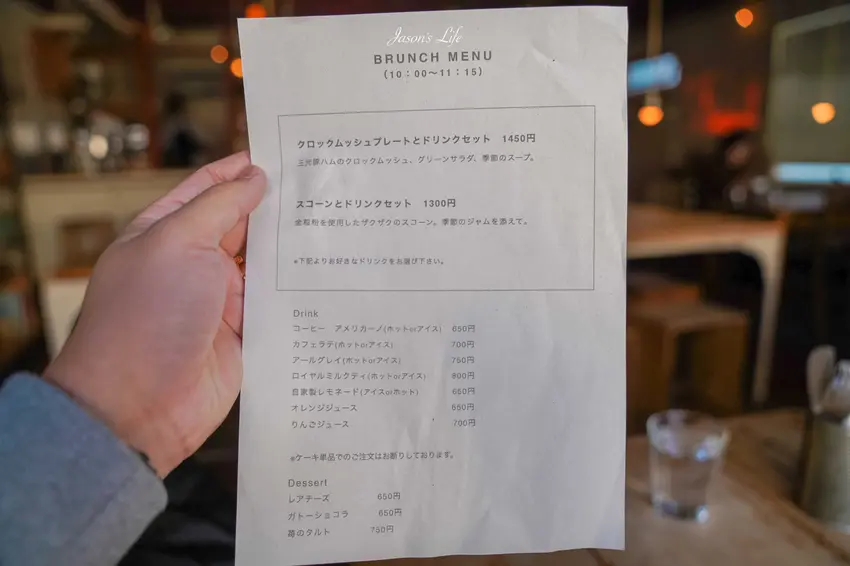 Jason's Life
BRUNCH MENU
(10：00〜11：15)
クロックムッシュプレートとドリンクセット 1450円
三元豚ハムのクロックムッシュ、グリーンサラダ、季節のスープ。
スコーンとドリンクセット 1300円
全粒粉を使用したザクザクのスコーン。季節のジャムを添えて。
※下記よりお好きなドリンクをお選び下さい。
Drink
コーヒー アメリカーノ(ホットorアイス) 650円
カフェラテ(ホットorアイス) 700円
アールグレイ(ホットorアイス) 750円
ロイヤルミルクティ(ホットorアイス) 800円
自家製レモネード(アイスorホット) 650円
オレンジジュース 650円
りんごジュース 700円
※ケーキ単品でのご注文はお断りしております。
Dessert
レアチーズ 650円
ガトーショコラ 650円
苺のタルト 750円